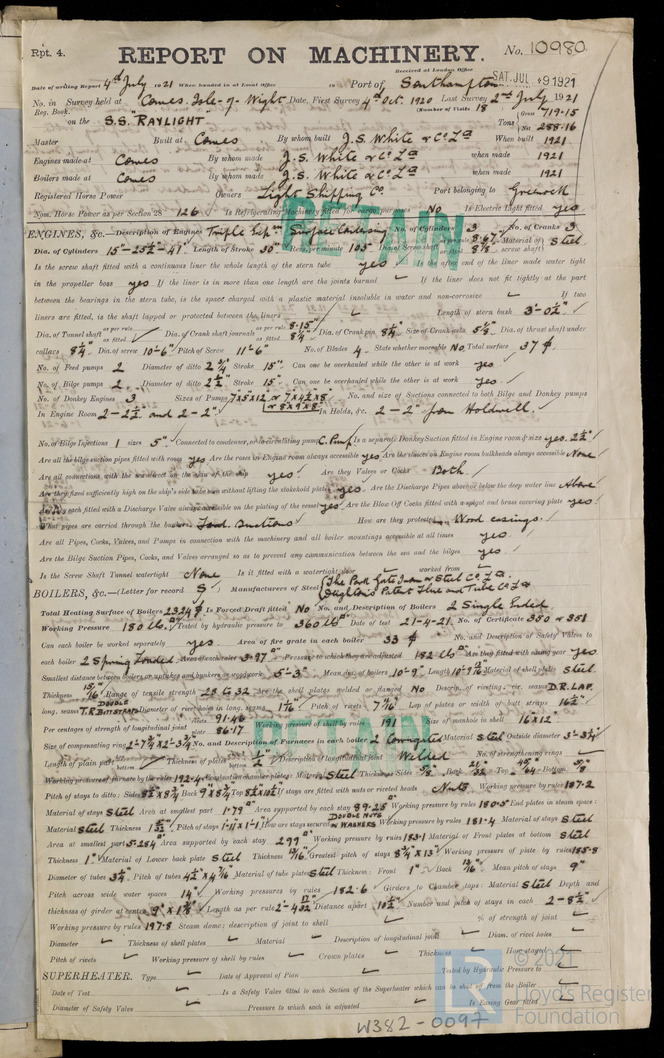 Rpt. 4.
REPORT ON MACHINERY.
No. 10980
Received at London Office
SAT. JUL 9 1921
Date of writing Report 4th July 1921 When handed in at Local Office 19 Port of Southampton
No. in Survey held at Cowes. Isle-of-Wight Date, First Survey 4th Oct. 1920 Last Survey 2nd July 1921
Reg. Book. (Number of Visits 18
on the S.S. "RAYLIGHT" Tons Gross 719.15
Net 288.16
Master Built at Cowes By whom built J.S. White & Co Ltd When built 1921
Engines made at Cowes By whom made J.S. White & Co Ltd when made 1921
Boilers made at Cowes By whom made J.S. White & Co Ltd when made 1921
Registered Horse Power Owners Light Shipping Co. Port belonging to Greenock
Nom. Horse Power as per Section 28 126 Is Refrigerating Machinery fitted for cargo purposes No Is Electric Light fitted yes
RETAIN
ENGINES, &c.—Description of Engines Triple Expn Surface Condensing No. of Cylinders 3 No. of Cranks 3
Dia. of Cylinders 15"-25½-41" Length of Stroke 30" Revs. per minute 105 Dia. of Screw shaft 8⅞ Material of screw shaft Steel
Is the screw shaft fitted with a continuous liner the whole length of the stern tube yes Is the after end of the liner made water tight
in the propeller boss yes If the liner is in more than one length are the joints burned If the liner does not fit tightly at the part
between the bearings in the stern tube, is the space charged with a plastic material insoluble in water and non-corrosive If two
liners are fitted, is the shaft lapped or protected between the liners Length of stern bush 3'-0½"
Dia. of Tunnel shaft as per rule as fitted Dia. of Crank shaft journals as per rule 8.15" as fitted 8¼" Dia. of Crank pin 8¼" Size of Crank webs 5⅛ Dia. of thrust shaft under
collars 8¼" Dia. of screw 10-6" Pitch of Screw 11'-6" No. of Blades 4 State whether moveable No Total surface 37
No. of Feed pumps 2 Diameter of ditto 2¾" Stroke 15" Can one be overhauled while the other is at work yes
No. of Bilge pumps 2 Diameter of ditto 2½" Stroke 15" Can one be overhauled while the other is at work yes
No. of Donkey Engines 3 Sizes of Pumps 7x5x12, 7x4½x8 & 8x9x8 No. and size of Suctions connected to both Bilge and Donkey pumps
In Engine Room 2-2½" and 2-2" In Holds, &c. 2-2" for Holdwell.
No. of Bilge Injections 1 sizes 5" Connected to condenser, or to circulating pump C. Pump Is a separate Donkey Suction fitted in Engine room & size yes. 2½"
Are all the bilge suction pipes fitted with roses yes Are the roses in Engine room always accessible yes Are the sluices on Engine room bulkheads always accessible None
Are all connections with the sea direct on the skin of the ship yes Are they Valves or Cocks Both
Are they fixed sufficiently high on the ship's side to be seen without lifting the stokehold plates yes Are the Discharge Pipes above or below the deep water line Above
Are they each fitted with a Discharge Valve always accessible on the plating of the vessel yes Are the Blow Off Cocks fitted with a spigot and brass covering plate yes
What pipes are carried through the bunkers Ford. Suctions How are they protected Wood casings.
Are all Pipes, Cocks, Valves, and Pumps in connection with the machinery and all boiler mountings accessible at all times yes
Are the Bilge Suction Pipes, Cocks, and Valves arranged so as to prevent any communication between the sea and the bilges yes
Is the Screw Shaft Tunnel watertight None Is it fitted with a watertight door worked from
BOILERS, &c.—(Letter for record S) Manufacturers of Steel The Park Gate Iron & Steel Co. Ltd.
Deighton's Patent Flue and Tube Co. Ltd
Total Heating Surface of Boilers 2324 Is Forced Draft fitted No No. and Description of Boilers 2 Single Ended
Working Pressure 180 lbs. Tested by hydraulic pressure to 360 lbs Date of test 21-4-21 No. of Certificate 350 & 351
Can each boiler be worked separately yes Area of fire grate in each boiler 33 No. and Description of Safety Valves to
each boiler 2 Spring Loaded Area of each valve 3.97 Pressure to which they are adjusted 182 lbs Are they fitted with easing gear yes
Smallest distance between boilers or uptakes and bunkers or woodwork 5'-3" Mean dia. of boilers 10'-9" Length Material of shell plates Steel
Thickness 15/16 Range of tensile strength 28 to 32 Are the shell plates welded or flanged No Descrip. of riveting: cir. seams D.R. LAP.
long. seams DOUBLE T.R. BUTT STRAPS Diameter of rivet holes in long. seams 1 1/16 Pitch of rivets 7 7/16 Lap of plates or width of butt straps 16½"
Per centages of strength of longitudinal joint rivets 91.46 plate 86.17 Working pressure of shell by rules 191 Size of manhole in shell 16x12"
Size of compensating ring No. and Description of Furnaces in each boiler 2 Corrugated Material Steel Outside diameter 3'-3¼"
Length of plain part top bottom Thickness of plates ½" Description of longitudinal joint Welded No. of strengthening rings
Working pressure of furnace by the rules 192.4 Combustion chamber plates: Material Steel Thickness: Sides ⅝ Back 21/32 Top 45/64 Bottom ⅝"
Pitch of stays to ditto: Sides 8½x8¾ Back 9x8¾ Top 8½x10½ If stays are fitted with nuts or riveted heads Nuts Working pressure by rules 187.2
Material of stays Steel Area at smallest part 1.79 Area supported by each stay 89.25 Working pressure by rules 180.5 End plates in steam space:
Material Steel Thickness Pitch of stays 1-11x1-1 How are stays secured DOUBLE NUTS & WASHERS Working pressure by rules 181.4 Material of stays Steel
Area at smallest part 5.284 Area supported by each stay 299 Working pressure by rules 183.1 Material of Front plates at bottom Steel
Thickness 1" Material of Lower back plate Steel Thickness 13/16 Greatest pitch of stays 8¾x13 Working pressure of plate by rules 185.8
Diameter of tubes 3¼ Pitch of tubes 4½x4 7/16 Material of tube plates Steel Thickness: Front 1" Back 13/16 Mean pitch of stays 9"
Pitch across wide water spaces 14" Working pressures by rules 182.6 Girders to Chamber tops: Material Steel Depth and
thickness of girder at centre 9x1⅝ Length as per rule Distance apart 10½ Number and pitch of stays in each 2-8½
Working pressure by rules 197.8 Steam dome: description of joint to shell % of strength of joint
Diameter Thickness of shell plates Material Description of longitudinal joint Diam. of rivet holes
Pitch of rivets Working pressure of shell by rules Crown plates Thickness How stayed
RETAIN
SUPERHEATER. Type Date of Approval of Plan Tested by Hydraulic Pressure to
Date of Test Is a Safety Valve fitted to each Section of the Superheater which can be shut off from the Boiler
Diameter of Safety Valve Pressure to which each is adjusted Is Easing Gear fitted
W382-0097
© 2021
Lloyd's Register
Foundation